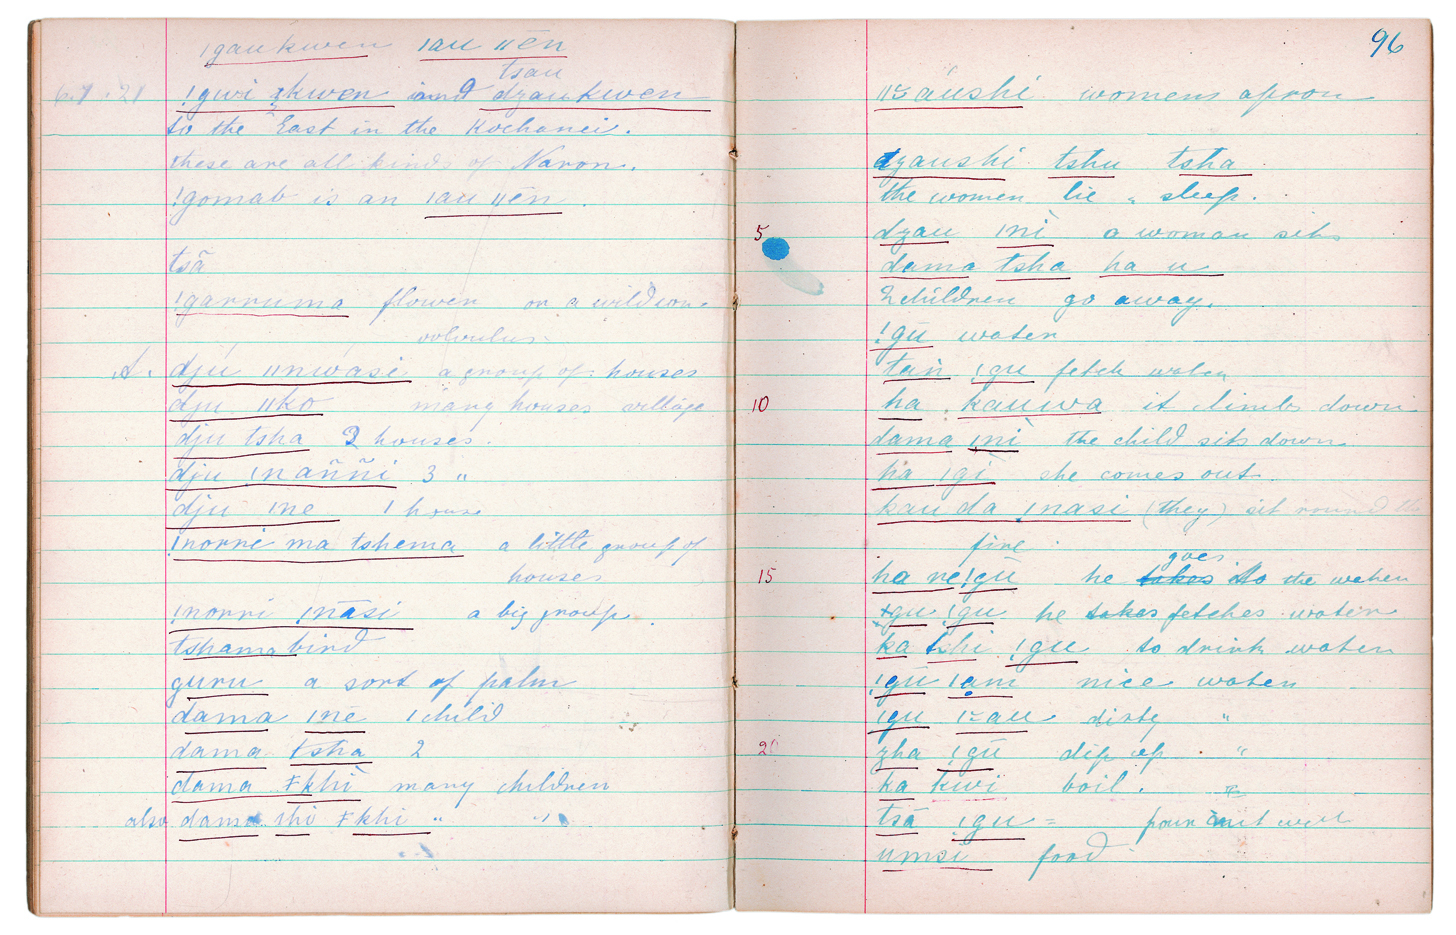 ǀgaukwen ǀau ǁēn
tsau
6.9.21 !gwi kwen and dzaukwen
to the East in the Kochanei.
these are all kinds of Naron.
!gomab is an ǀau ǁēn.
tsā
!garruma flower or a wild con-
volvulus.
A. dju ǁnwasi a group of houses
dju ǁko many houses village
dju tsha 2 houses.
dju ǃnaññi 3 "
dju ǀne 1 house
ǃnorri ma tshema a little group of
houses
ǃnorri ǃnāsi a big group.
tshama bird
guru a sort of palm
dama ǀnē 1 child
dama tsha 2
dama ǂkhi many children
also dama ihi ǂkhi " "
96
ǁ~aushi womens apron
dzaushi tshu tsha
the women lie " sleep.
5 dzau ǀnì a woman sits
dama tsha ha u
2 children go away.
!gū water
tain !gu fetch water
10 ha kauwa it climbs down
dama ǀnì the child sits down
ha ǀgi she comes out.
kau da ǃnasi (they) sit round the
fire
goes
15 ha ne !gū he takes to the water
ǂgu !gu he takes fetches water
ka tshi !gu to drink water
!gū ǀam nice water
!gu ǀ~au dirty "
20 zha !gū dip up "
ka kwï boil.
tsā !gu = pour out well
umsi food